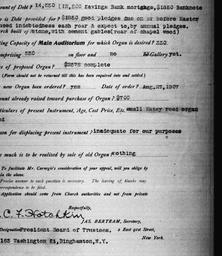 of Debt? 14,550 (12,500 Savings Bank mortgage, $1550 Banknote
is Debt provided for? $1550 good pledges due on or before Easter
indebtedness each year a report to, by annual pledges.
built of stone, with cement gables (rear of chapel wood)
Capacity of Main Auditorium for which Organ is desired? 350
comprising 350 on floor and no in Gallery.
of proposed Organ? $2578 complete
(Form should not to returned till this has been inquired into and settled)
new Organ been ordered? yes Date? Aug. 27, 1907
amount already raised toward purchase of Organ? $700
Particulars of present Instrument, Age, Cost Price, Etc. small Estey reed organ
son for displacing present instrument? inadequate for our purposes
much is to be realised by sale of old Organ nothing
To facilitate Mr. Carnegie's consideration of your appeal, will you oblige by
in the above.
Precise answer to each question is necessary. The leaving of blanks may
correspondence to be filed.
Application should come from Church authorities and not from private
Respectfully,
C. F. Hotchkin
JAS. BERTRAM, Secretary,
Designation President Board of Trustees. 2 East 91st Street,
New York.
162 Washington St, Binghamton, N.Y.